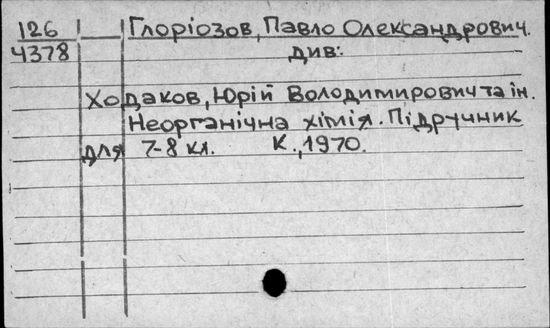 126 Глоріозов, Павло Олександрович.
4378 див:
Ходаков, Юрій Володимирович та ін.
Неорганічна хімія. Підручник
для 7-8 кл. К., 1970.